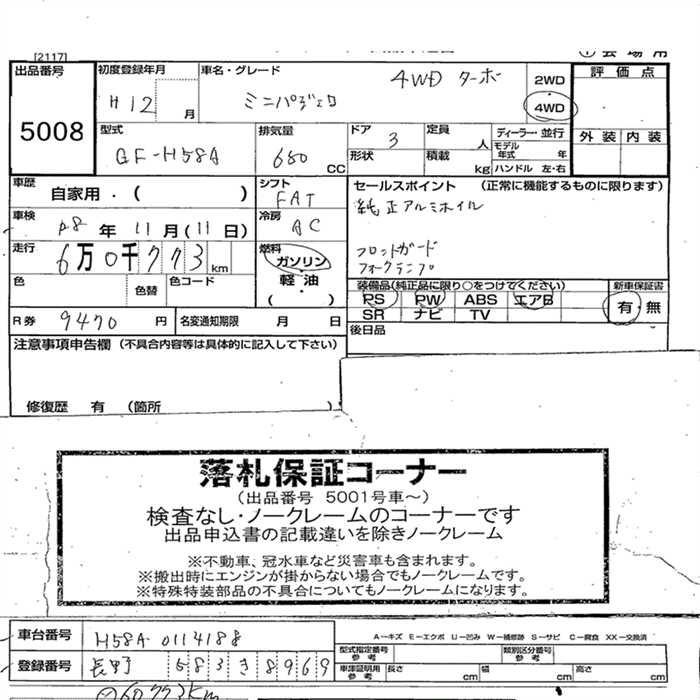 [2117]
① 会場用
出品番号 初度登録年月 車名・グレード 評価点
5008
H12 月 ミニパジェロ 4WD ターボ 2WD 4WD
型式 排気量 ドア 定員 ディーラー・並行 外装 内装
GF-H58A 660 CC 3 人 モデル年式 年
形状 積載 kg ハンドル 左・右
車歴 シフト セールスポイント (正常に機能するものに限ります)
自家用・( ) FAT 純正アルミホイル
車検 冷房
R8 年 11 月 (11 日) AC フロントガード
走行 燃料 フォグランプ
6万0千773 km ガソリン
色 色替 色コード 軽油 ( )
装備品(純正品に限り○をつけてください) 新車保証書
PS PW ABS エアB 有・無
SR ナビ TV
R券 9470 円 名変通知期限 月 日
後日品
注意事項申告欄 (不具合内容等は具体的に記入して下さい)
修復歴 有 (箇所 )
落札保証コーナー
(出品番号 5001号車~)
検査なし・ノークレームのコーナーです
出品申込書の記載違いを除きノークレーム
※不動車、冠水車など災害車も含まれます。
※搬出時にエンジンが掛からない場合でもノークレームです。
※特殊特装部品の不具合についてもノークレームになります。
車台番号 H58A-0114188
A-キズ E-エクボ U-凹み W-補修跡 S-サビ C-腐食 XX-交換済
型式指定番号 参考 類別区分番号 参考
登録番号 長野 583 き 8969
車庫証明用 参考 長さ cm 幅 cm 高さ cm
60773km